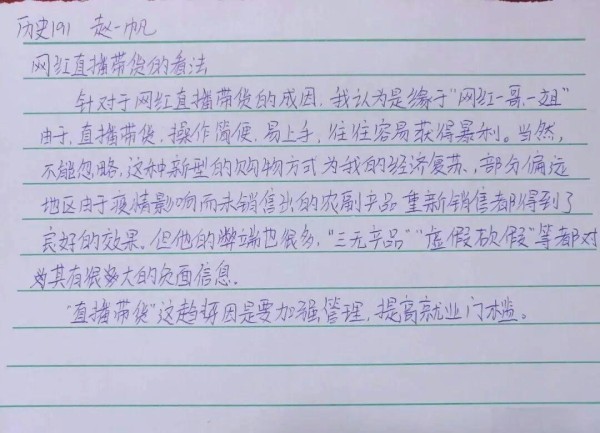 历史191 赵一帆
网红直播带货的看法
针对于网红直播带货的成因，我认为是缘于“网红一哥，一姐”
由于，直播带货，操作简便，易上手，往往容易获得暴利。当然，
不能忽略，这种新型的购物方式为我的经济复苏，部分偏远
地区由于疫情影响而未销售出的农副产品重新销售都得到了
良好的效果。但他的弊端也很多，“三无产品”“虚假砍假”等都对
其有很大的负面信息。
“直播带货”这趋 因是要加强管理，提高就业门槛。